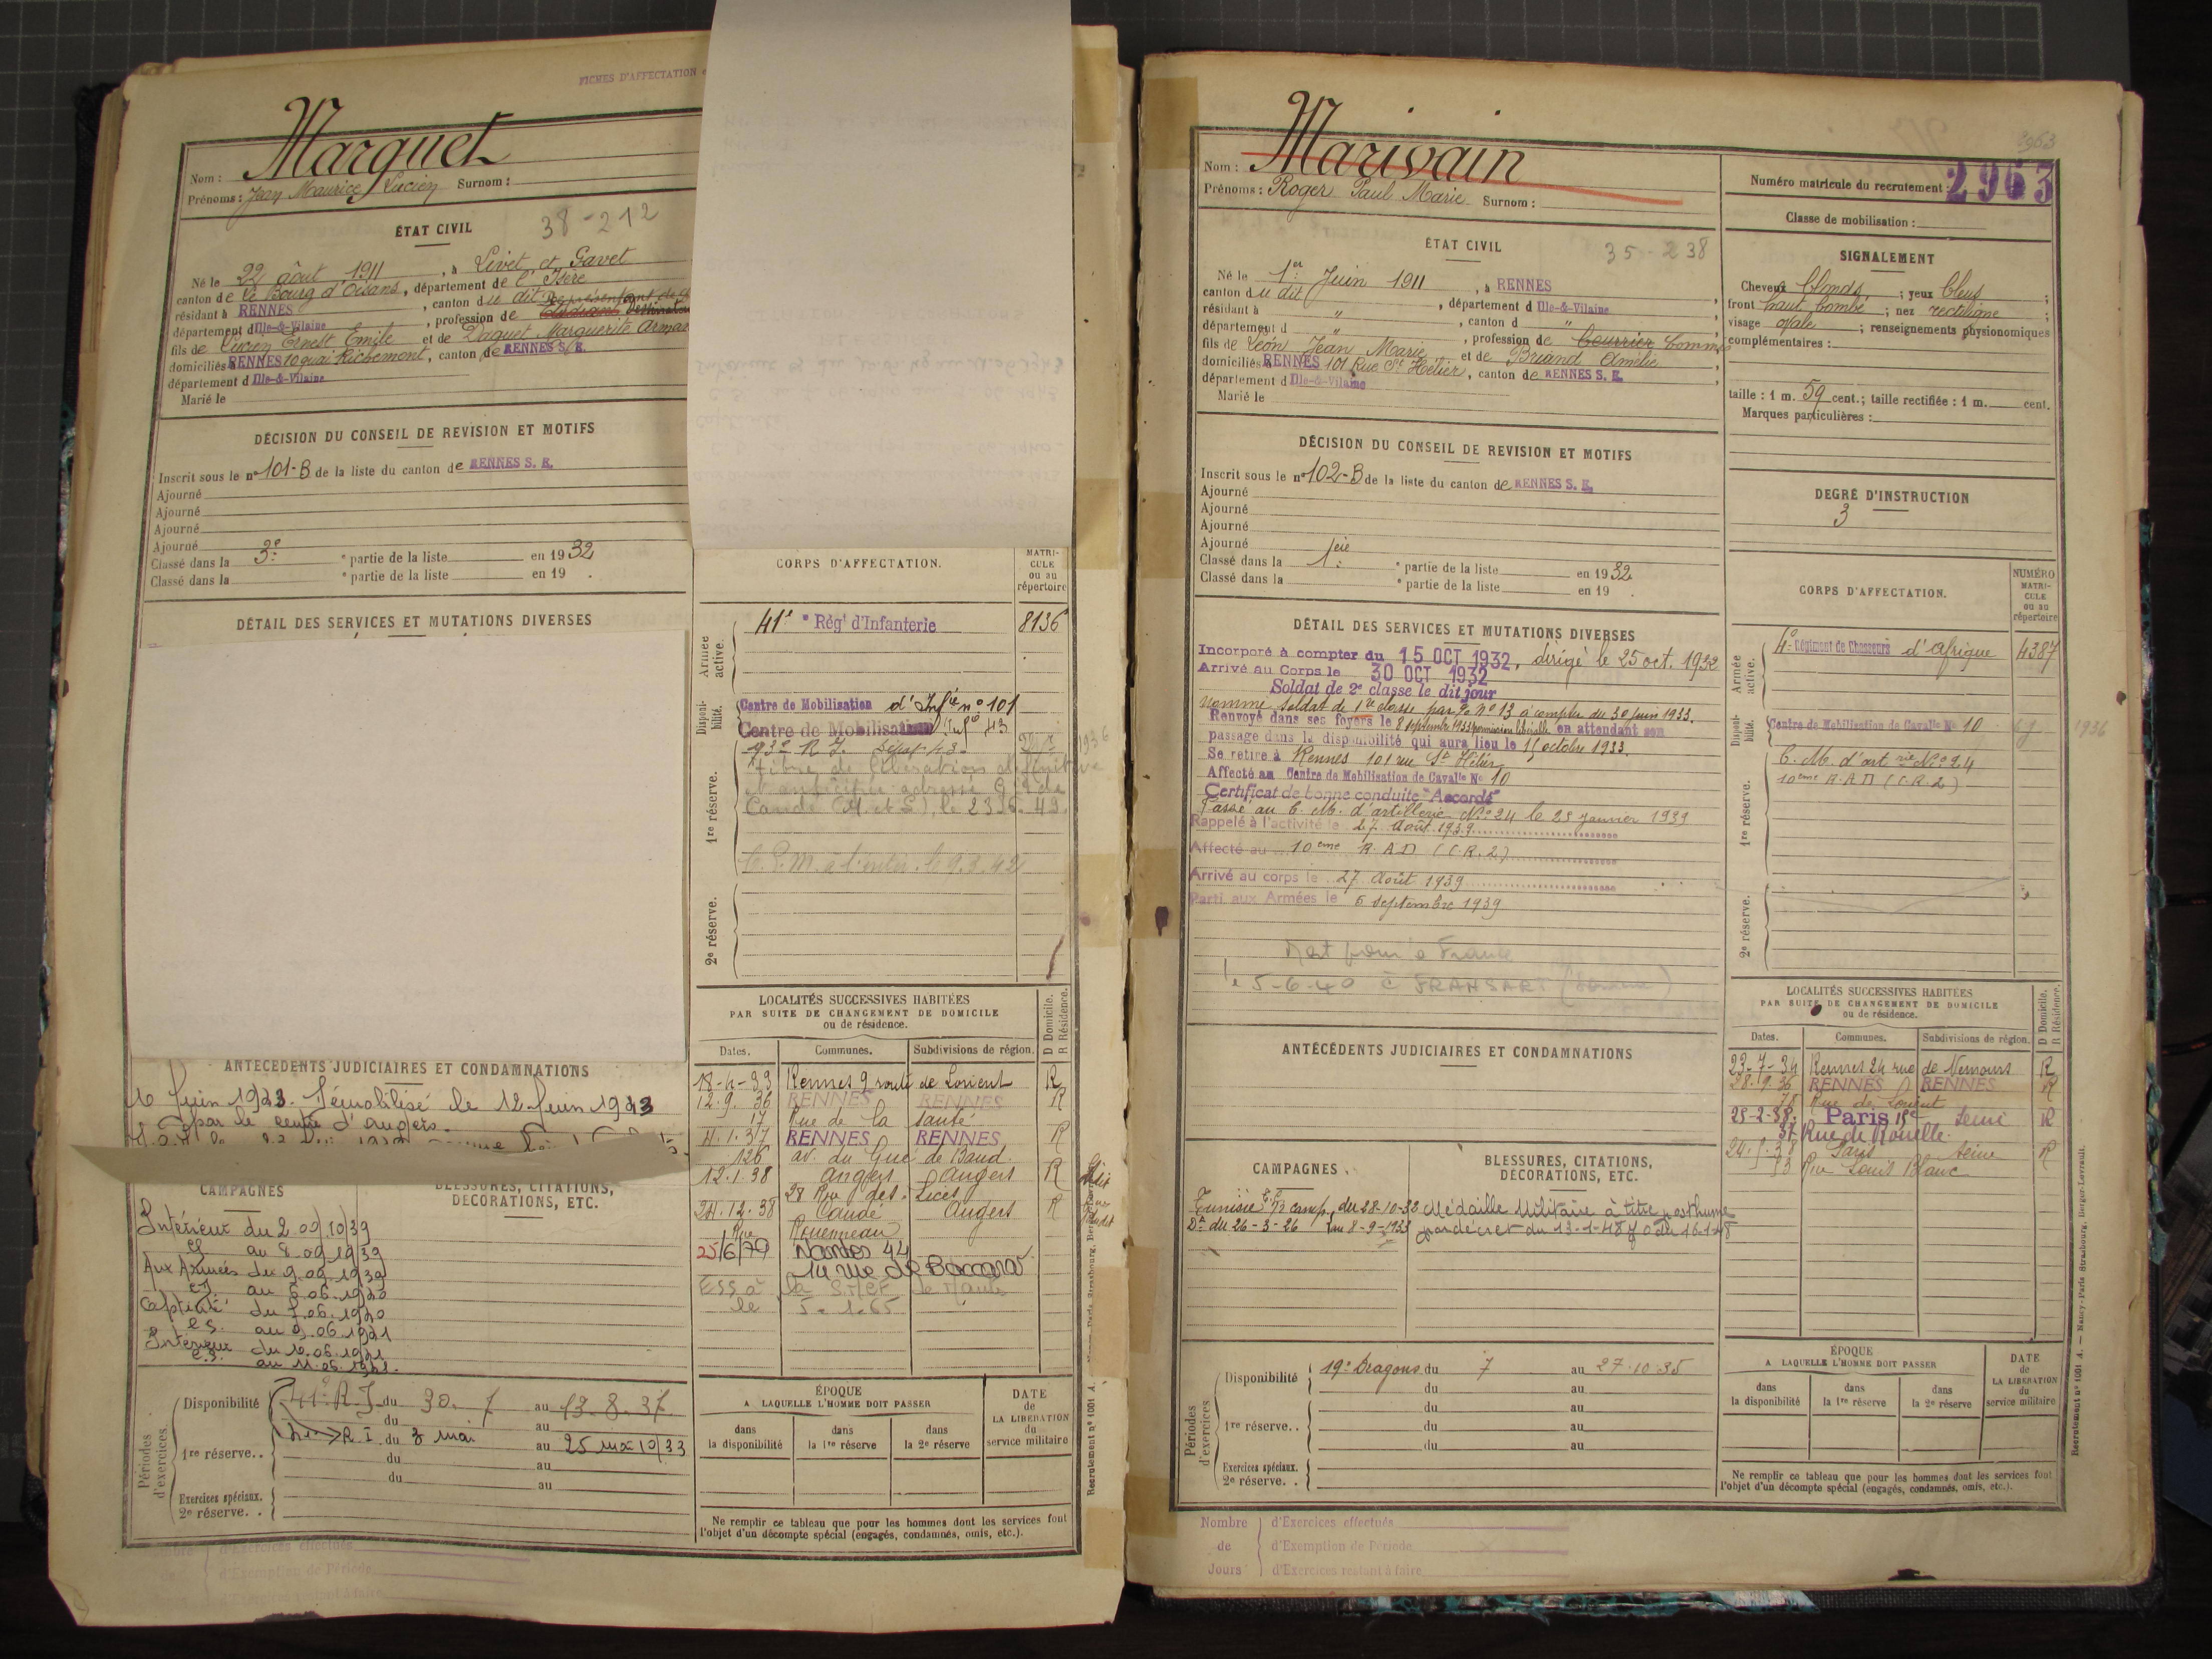 FICHES D'AFFECTATION
Nom : Marquet
Prénoms : Jean Maurice Lucien Surnom :
ÉTAT CIVIL
38-212
Né le 22 août 1911, à Livet et Gavet
canton de Le Bourg d'Oisans, département de l'Isère
résidant à RENNES, canton du dit
département d Ille-&-Vilaine, profession de
fils de Lucien Ernest Emile et de Daquet Marguerite
domiciliés RENNES 10 quai Richemont, canton de RENNES S. E.
département d Ille-&-Vilaine
Marié le
DÉCISION DU CONSEIL DE REVISION ET MOTIFS
Inscrit sous le nº 101-B de la liste du canton de RENNES S. E.
Ajourné
Ajourné
Ajourné
Ajourné
Classé dans la 3e partie de la liste en 1932
Classé dans la partie de la liste en 19 .
DÉTAIL DES SERVICES ET MUTATIONS DIVERSES
ANTÉCÉDENTS JUDICIAIRES ET CONDAMNATIONS
Démobilisé le 12 Juin
par le centre d'angers.
CAMPAGNES
BLESSURES, CITATIONS,
DÉCORATIONS, ETC.
Intérieur du 2.09.1939
au 8.09.1939
Aux Armées du 9.09.1939
Captivité
Intérieur
Périodes d'exercices.
Disponibilité 41e R I du 30. 7 au 13. 8. 37.
du au
1re réserve. . R. I. du 3 mai au 25 mai
du au
du au
Exercices spéciaux.
2e réserve. .
CORPS D'AFFECTATION.
MATRI-
CULE
ou au
répertoire
Armée active.
41e Régt d'Infanterie 8136
Disponibilité.
Centre de Mobilisation d'Infie nº 101
Centre de Mobilisation Infie 43
1re réserve.
titre de libération définitive
et anticipée adressé
Candé (M. et L.), le
2e réserve.
LOCALITÉS SUCCESSIVES HABITÉES
PAR SUITE DE CHANGEMENT DE DOMICILE
ou de résidence.
D Domicile.
R Résidence.
Dates. Communes. Subdivisions de région.
Rennes 9 route de Lorient R
12. 9. 36 RENNES RENNES R
17 Rue de la santé
11. 1. 37 RENNES RENNES R
126 av. du Gué de Baud.
12. 1. 38 Angers Angers R
28 Rue des Lices
24. 12. 38 Candé Angers R
Rue
25/6/79 Nantes 44
14 rue de
le 5. 1. 65
ÉPOQUE
A LAQUELLE L'HOMME DOIT PASSER
DATE
de
LA LIBÉRATION
du
service militaire
dans
la disponibilité
dans
la 1re réserve
dans
la 2e réserve
Ne remplir ce tableau que pour les hommes dont les services font
l'objet d'un décompte spécial (engagés, condamnés, omis, etc.).
Recrutement nº 1001 A.
d'Exercices effectués
d'Exemption de Période
d'Exercices restant à faire
Nom : Marivain
Prénoms : Roger Paul Marie Surnom :
2963
Numéro matricule du recrutement : 2963
Classe de mobilisation :
ÉTAT CIVIL
35-238
Né le 1er Juin 1911, à RENNES
canton du dit, département d Ille-&-Vilaine
résidant à " , canton d "
département d " , profession de Courrier
fils de Léon Jean Marie et de Briand Amélie
domiciliés RENNES 101 Rue St Hélier, canton de RENNES S. E.
département d Ille-&-Vilaine
Marié le
SIGNALEMENT
Cheveux blonds ; yeux bleus ;
front haut bombé ; nez rectiligne ;
visage ovale ; renseignements physionomiques
complémentaires :
taille : 1 m. 59 cent. ; taille rectifiée : 1 m. cent.
Marques particulières :
DÉCISION DU CONSEIL DE REVISION ET MOTIFS
Inscrit sous le nº 102-B de la liste du canton de RENNES S. E.
Ajourné
Ajourné
Ajourné
Ajourné
Classé dans la 1ère partie de la liste en 1932
Classé dans la partie de la liste en 19 .
DEGRÉ D'INSTRUCTION
3
DÉTAIL DES SERVICES ET MUTATIONS DIVERSES
Incorporé à compter du 15 OCT 1932, dirigé le 25 oct. 1932
Arrivé au Corps le 30 OCT 1932
Soldat de 2e classe le dit jour
Nommé soldat de 1re classe par Do nº 13 à compter du 30 juin 1933.
Renvoyé dans ses foyers le 8 septembre 1933 permission libérable en attendant son
passage dans la disponibilité qui aura lieu le 15 octobre 1933.
Se retire à Rennes 101 rue St Hélier
Affecté au Centre de Mobilisation de Cavalie Nº 10
Certificat de bonne conduite "Accordé"
Passé au C. M. d'artillerie Nº 24 le 25 janvier 1939
Rappelé à l'activité le 27 Août 1939
Affecté au 10ème R. A. D (C. R. 2)
Arrivé au corps le 27 Août 1939
Parti aux Armées le 6 septembre 1939
Mort pour la France
le 5-6-40 à FRANSART (Somme)
CORPS D'AFFECTATION.
NUMÉRO
MATRI-
CULE
ou au
répertoire
Armée active.
4e Régiment de Chasseurs d'afrique 4387
Disponibilité.
Centre de Mobilisation de Cavalie Nº 10 1936
1re réserve.
C. M. d'artrie Nº 24
10ème R. A. D (C. R. 2)
2e réserve.
ANTÉCÉDENTS JUDICIAIRES ET CONDAMNATIONS
LOCALITÉS SUCCESSIVES HABITÉES
PAR SUITE DE CHANGEMENT DE DOMICILE
ou de résidence.
D Domicile.
R Résidence.
Dates. Communes. Subdivisions de région.
23-7-34 Rennes 24 rue de Nemours R
28. 9. 36 RENNES RENNES R
78 Rue de Lorient
25-2-38. Paris 15e Seine R
37 Rue de Rouelle.
Paris Seine R
83 Rue Louis Blanc
CAMPAGNES
Tunisie du 28-10-32
au 8-9-1933
BLESSURES, CITATIONS,
DÉCORATIONS, ETC.
Médaille Militaire à titre posthume
par décret du 13-1-48 JO du 16-1-48
Périodes d'exercices.
Disponibilité 19e Dragons du 7 au 27-10-35
du au
du au
1re réserve. . du au
du au
Exercices spéciaux.
2e réserve. .
ÉPOQUE
A LAQUELLE L'HOMME DOIT PASSER
DATE
de
LA LIBÉRATION
du
service militaire
dans
la disponibilité
dans
la 1re réserve
dans
la 2e réserve
Ne remplir ce tableau que pour les hommes dont les services font
l'objet d'un décompte spécial (engagés, condamnés, omis, etc.).
Recrutement nº 1001 A. — Nancy-Paris Strasbourg, Berger-Levrault.
Nombre d'Exercices effectués
de d'Exemption de Période
Jours d'Exercices restant à faire